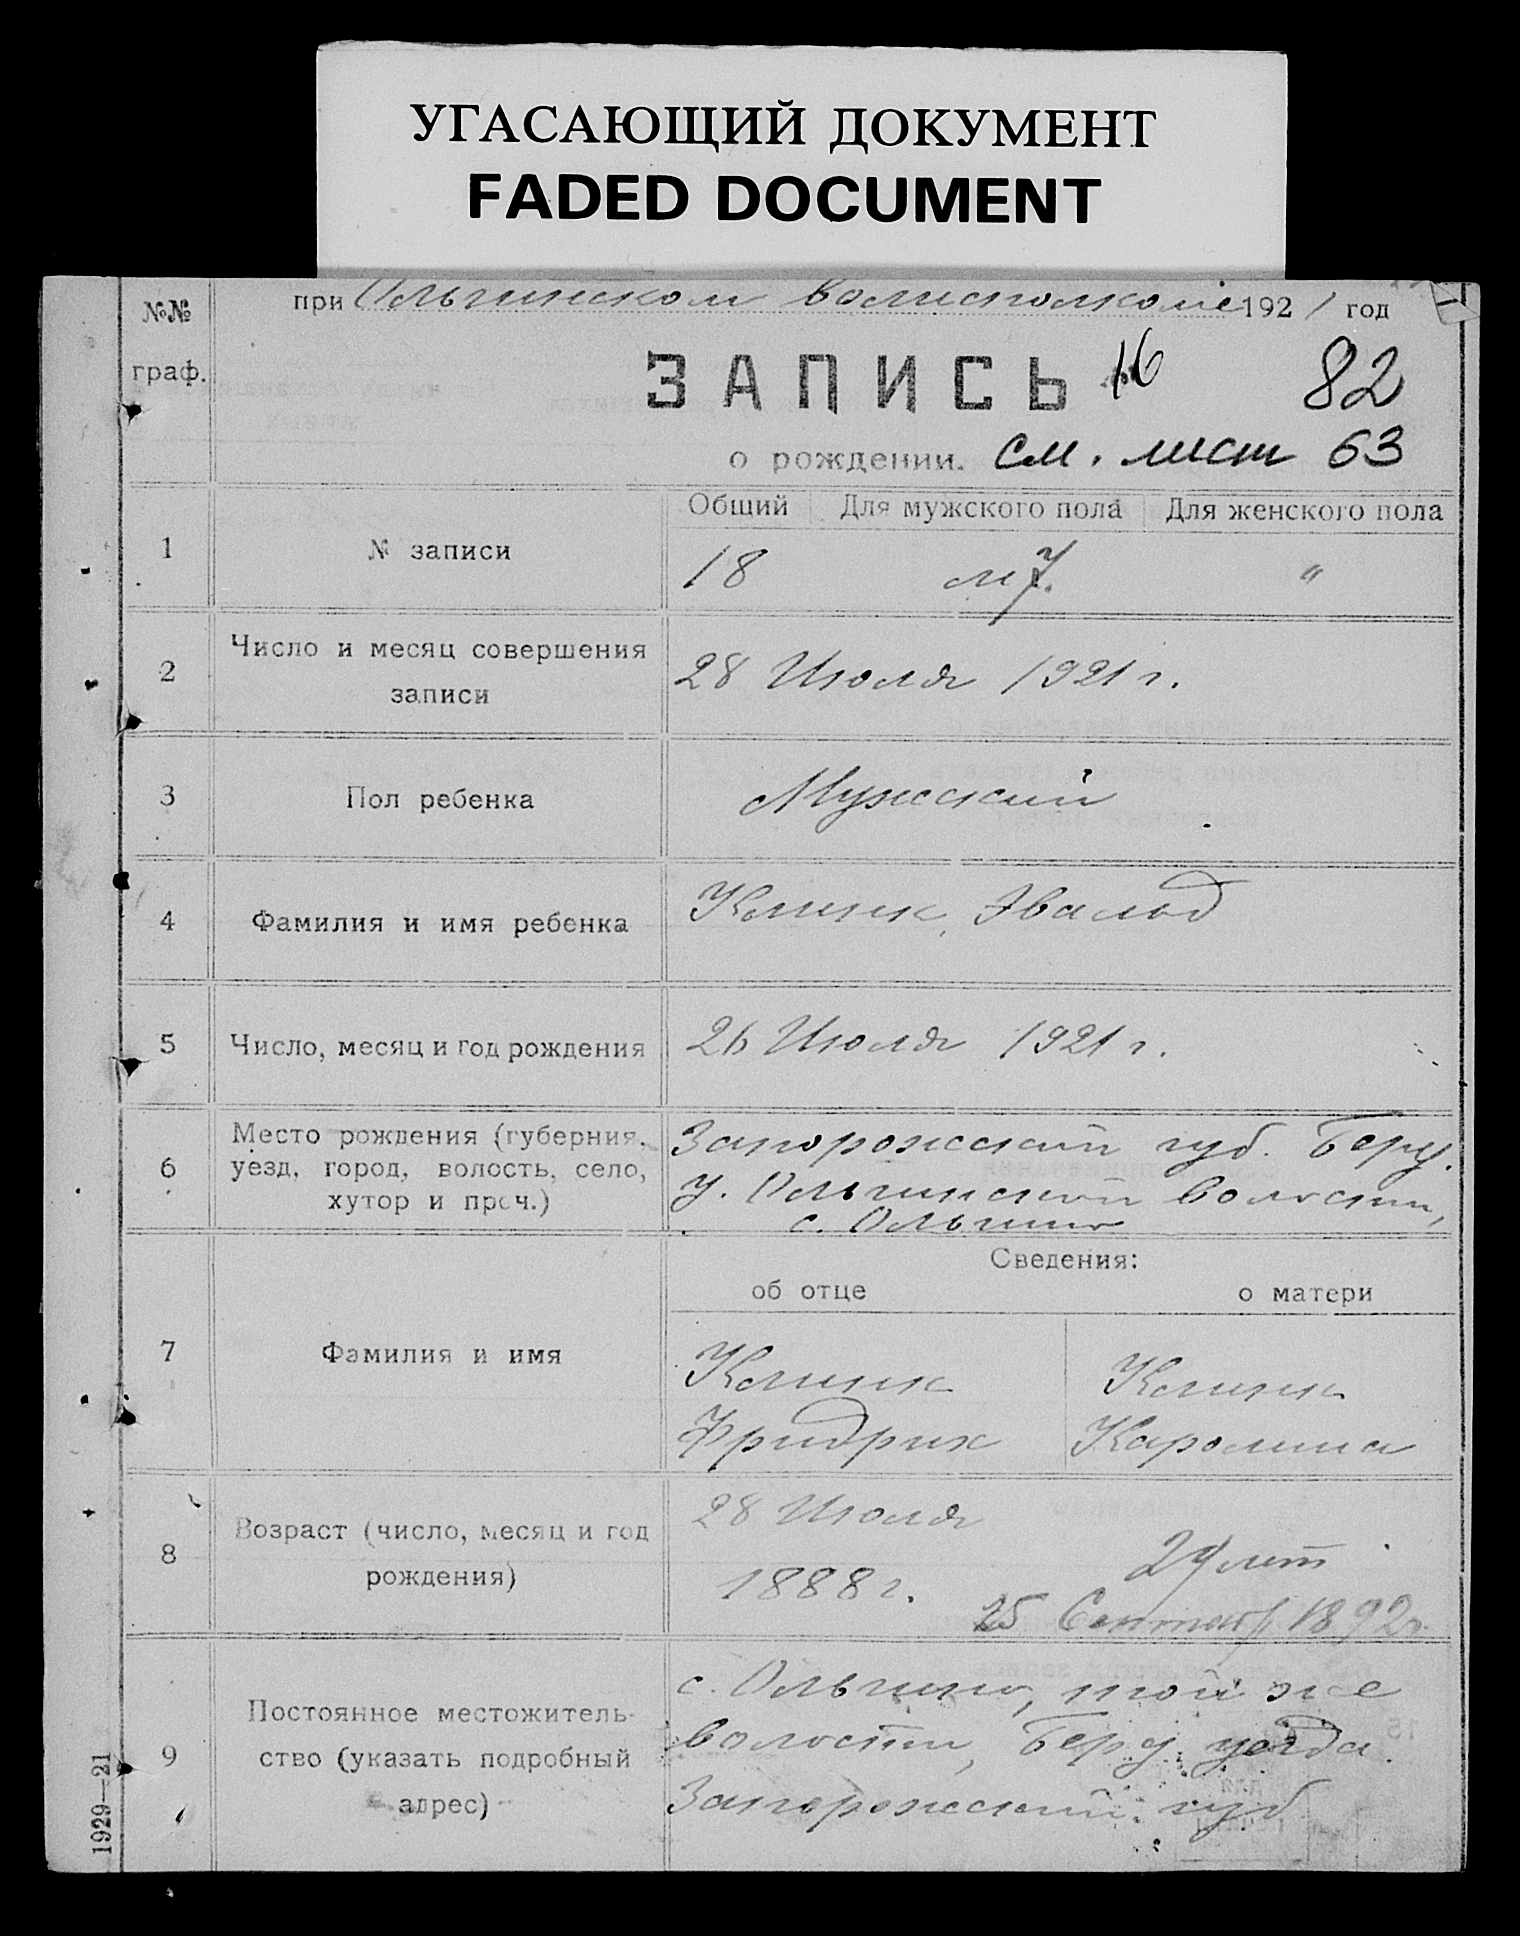 УГАСАЮЩИЙ ДОКУМЕНТ
FADED DOCUMENT
№№ граф.
при Ольгинском волисполкоме 1921 год
ЗАПИСЬ 16 82
о рождении. см. лист 63
Общий Для мужского пола Для женского пола
1 № записи 18 м 7. "
2 Число и месяц совершения
записи
28 Июля 1921 г.
3 Пол ребенка Мужский
4 Фамилия и имя ребенка Клинк, Эвальд
5 Число, месяц и год рождения 26 Июля 1921 г.
6 Место рождения (губерния,
уезд, город, волость, село,
хутор и проч.)
Запорожский губ. Берд.
у. Ольгинской волости,
с. Ольгино
Сведения:
об отце о матери
7 Фамилия и имя
Клинк Клинк
Фридрих Каролина
8 Возраст (число, месяц и год
рождения)
28 Июля
1888 г.
29 лет
25 Сентябр 1892 г.
9 Постоянное местожитель-
ство (указать подробный
адрес)
с. Ольгино, той же
волости, Берд. уезда.
Запорожский губ
1929—21